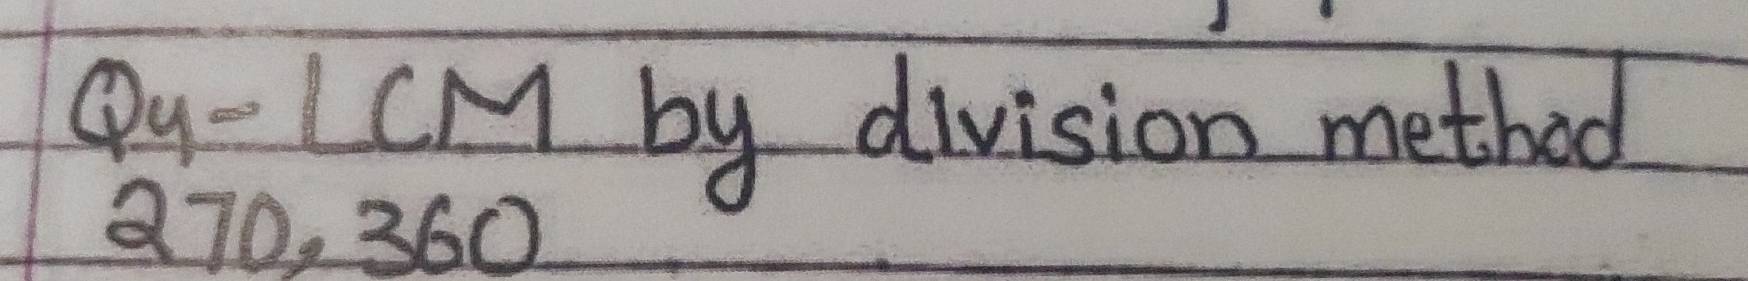 Q4-LCM by division method
270, 360